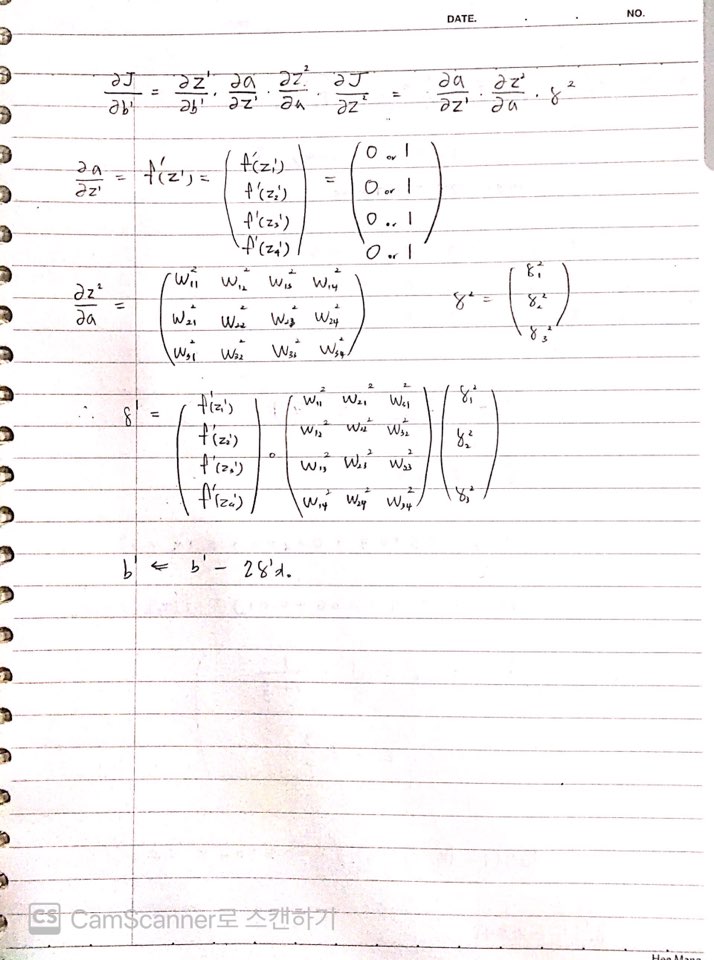 DATE. . . NO.
∂J/∂b¹ = ∂z¹/∂b¹ · ∂a/∂z¹ · ∂z²/∂a · ∂J/∂z² = ∂a/∂z¹ · ∂z²/∂a · δ²
∂a/∂z¹ = f'(z¹) = (f'(z₁¹) f'(z₂¹) f'(z₃¹) f'(z₄¹)) = (0 or 1 0 or 1 0 or 1 0 or 1)
∂z²/∂a = (w₁₁² w₁₂² w₁₃² w₁₄² w₂₁² w₂₂² w₂₃² w₂₄² w₃₁² w₃₂² w₃₃² w₃₄²) δ² = (δ₁² δ₂² δ₃²)
∴ δ¹ = (f'(z₁¹) f'(z₂¹) f'(z₃¹) f'(z₄¹)) ∘ (w₁₁² w₂₁² w₃₁² w₁₂² w₂₂² w₃₂² w₁₃² w₂₃² w₂₃² w₁₄² w₂₄² w₃₄²) (δ₁² δ₂² δ₃²)
b¹ ⇐ b¹ - 2δ¹α.
CS CamScanner로 스캔하기